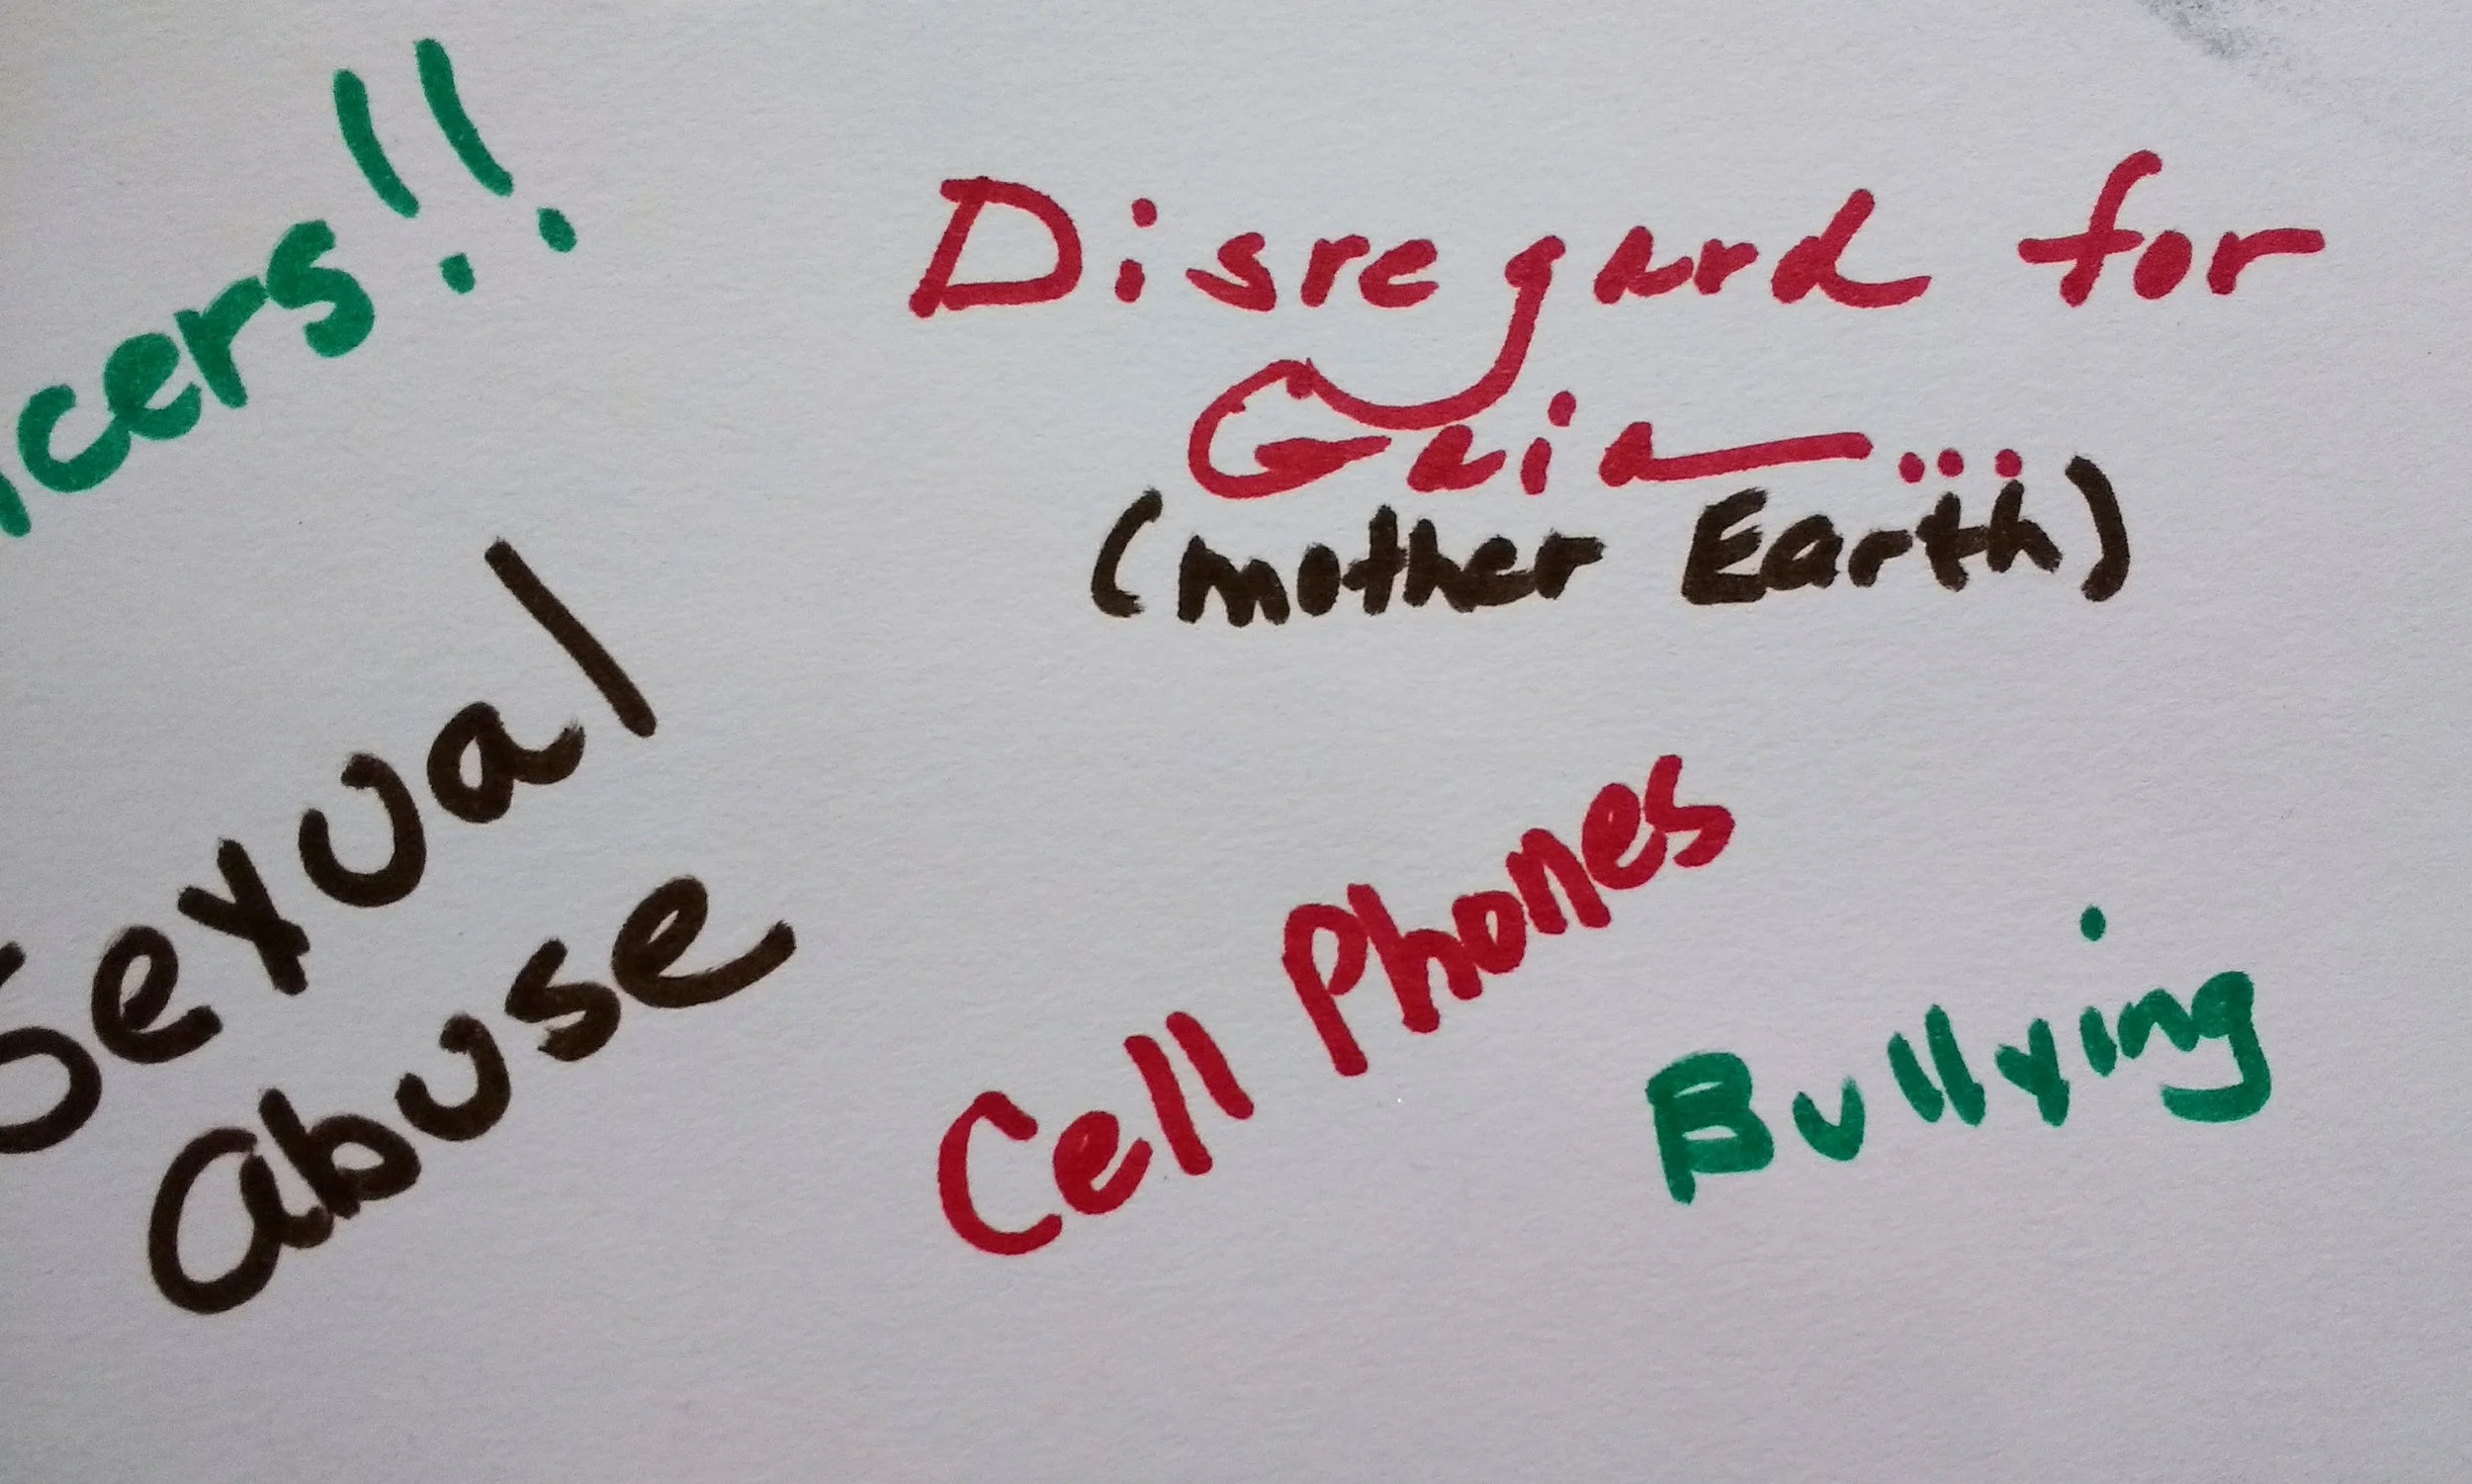 cers!!
Disregard for
Gaia...
(mother Earth)
Sexual
abuse
Cell Phones
Bullying